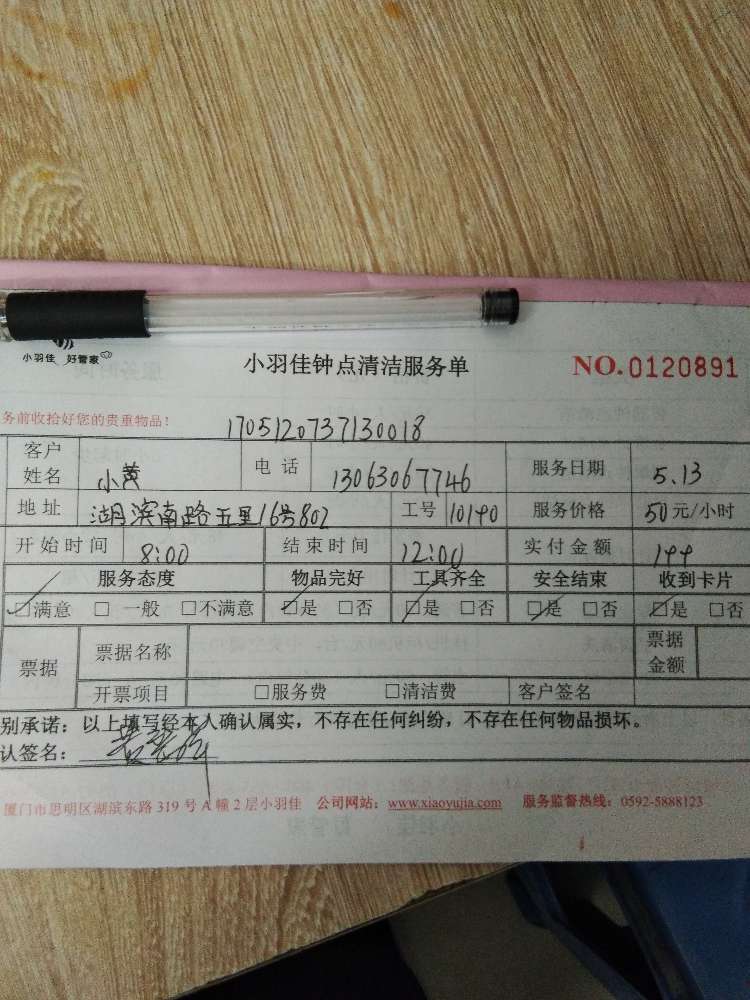 小羽佳 好管家
小羽佳钟点清洁服务单
NO.0120891
务前收拾好您的贵重物品！
1705120737130018
客户姓名 小黄 电话 13063067746 服务日期 5.13
地址 湖滨南路五里16号802 工号 10140 服务价格 50元/小时
开始时间 8:00 结束时间 12:00 实付金额 144
服务态度 物品完好 工具齐全 安全结束 收到卡片
☑满意 □一般 □不满意 ☑是 □否 ☑是 □否 ☑是 □否 ☑是 □否
票据 票据名称 票据金额
开票项目 □服务费 □清洁费 客户签名
别承诺：以上填写经本人确认属实，不存在任何纠纷，不存在任何物品损坏。
认签名：
厦门市思明区湖滨东路 319 号 A 幢 2 层小羽佳 公司网站：www.xiaoyujia.com 服务监督热线：0592-5888123